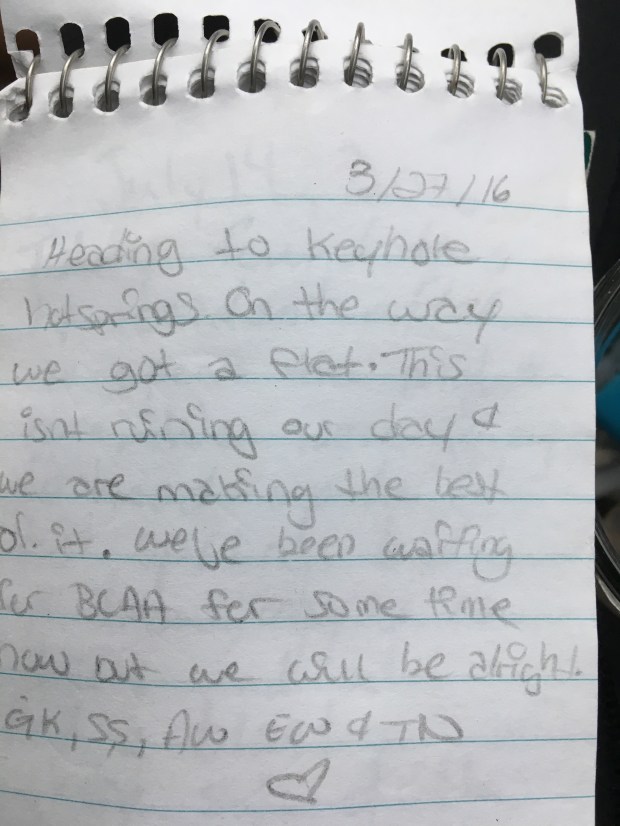 3/27/16
Heading to Keyhole
hotsprings. On the way
we got a flat. This
isnt ruining our day &
we are making the best
of it. we've been waiting
for BCAA for some time
now but we will be alright.
GK, SS, AW EW & TN